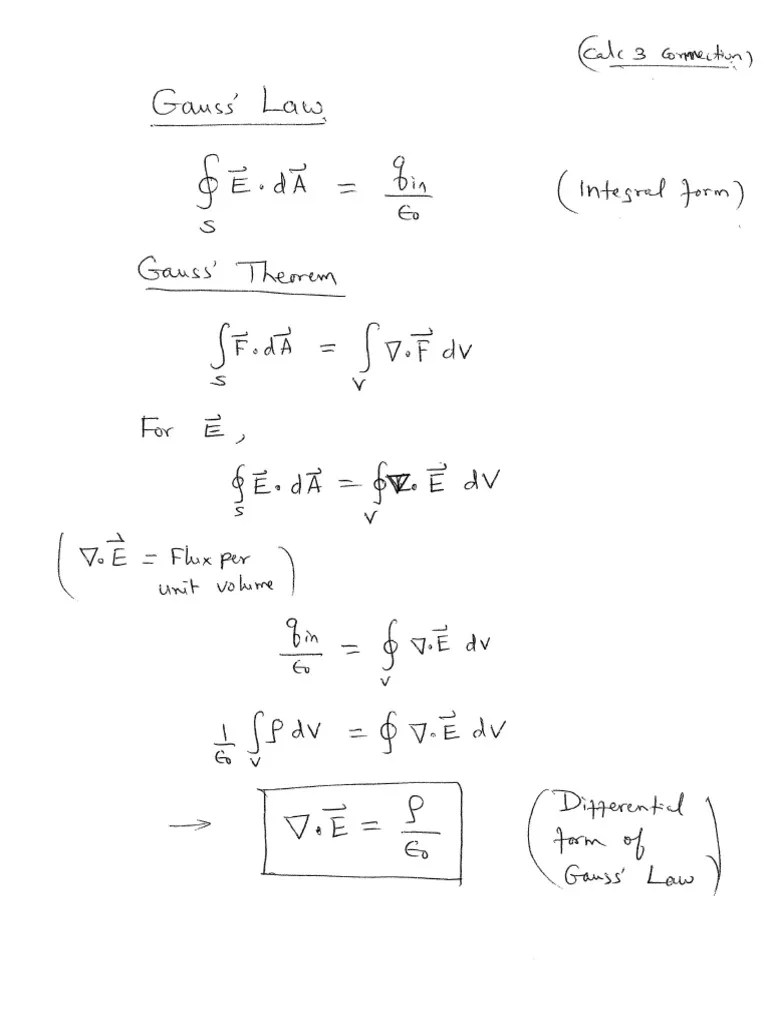 (Calc 3 connection)
Gauss' Law
∮_S E⃗ · dA⃗ = q_in / ϵ₀ (Integral form)
Gauss' Theorem
∫_S F⃗ · dA⃗ = ∫_V ∇ · F⃗ dV
For E⃗,
∮_S E⃗ · dA⃗ = ∮_V ∇ · E⃗ dV
(∇ · E⃗ = Flux per
unit volume)
q_in / ϵ₀ = ∮_V ∇ · E⃗ dV
1/ϵ₀ ∫_V ρ dV = ∮ ∇ · E⃗ dV
→ ∇ · E⃗ = ρ / ϵ₀
(Differential
form of
Gauss' Law)